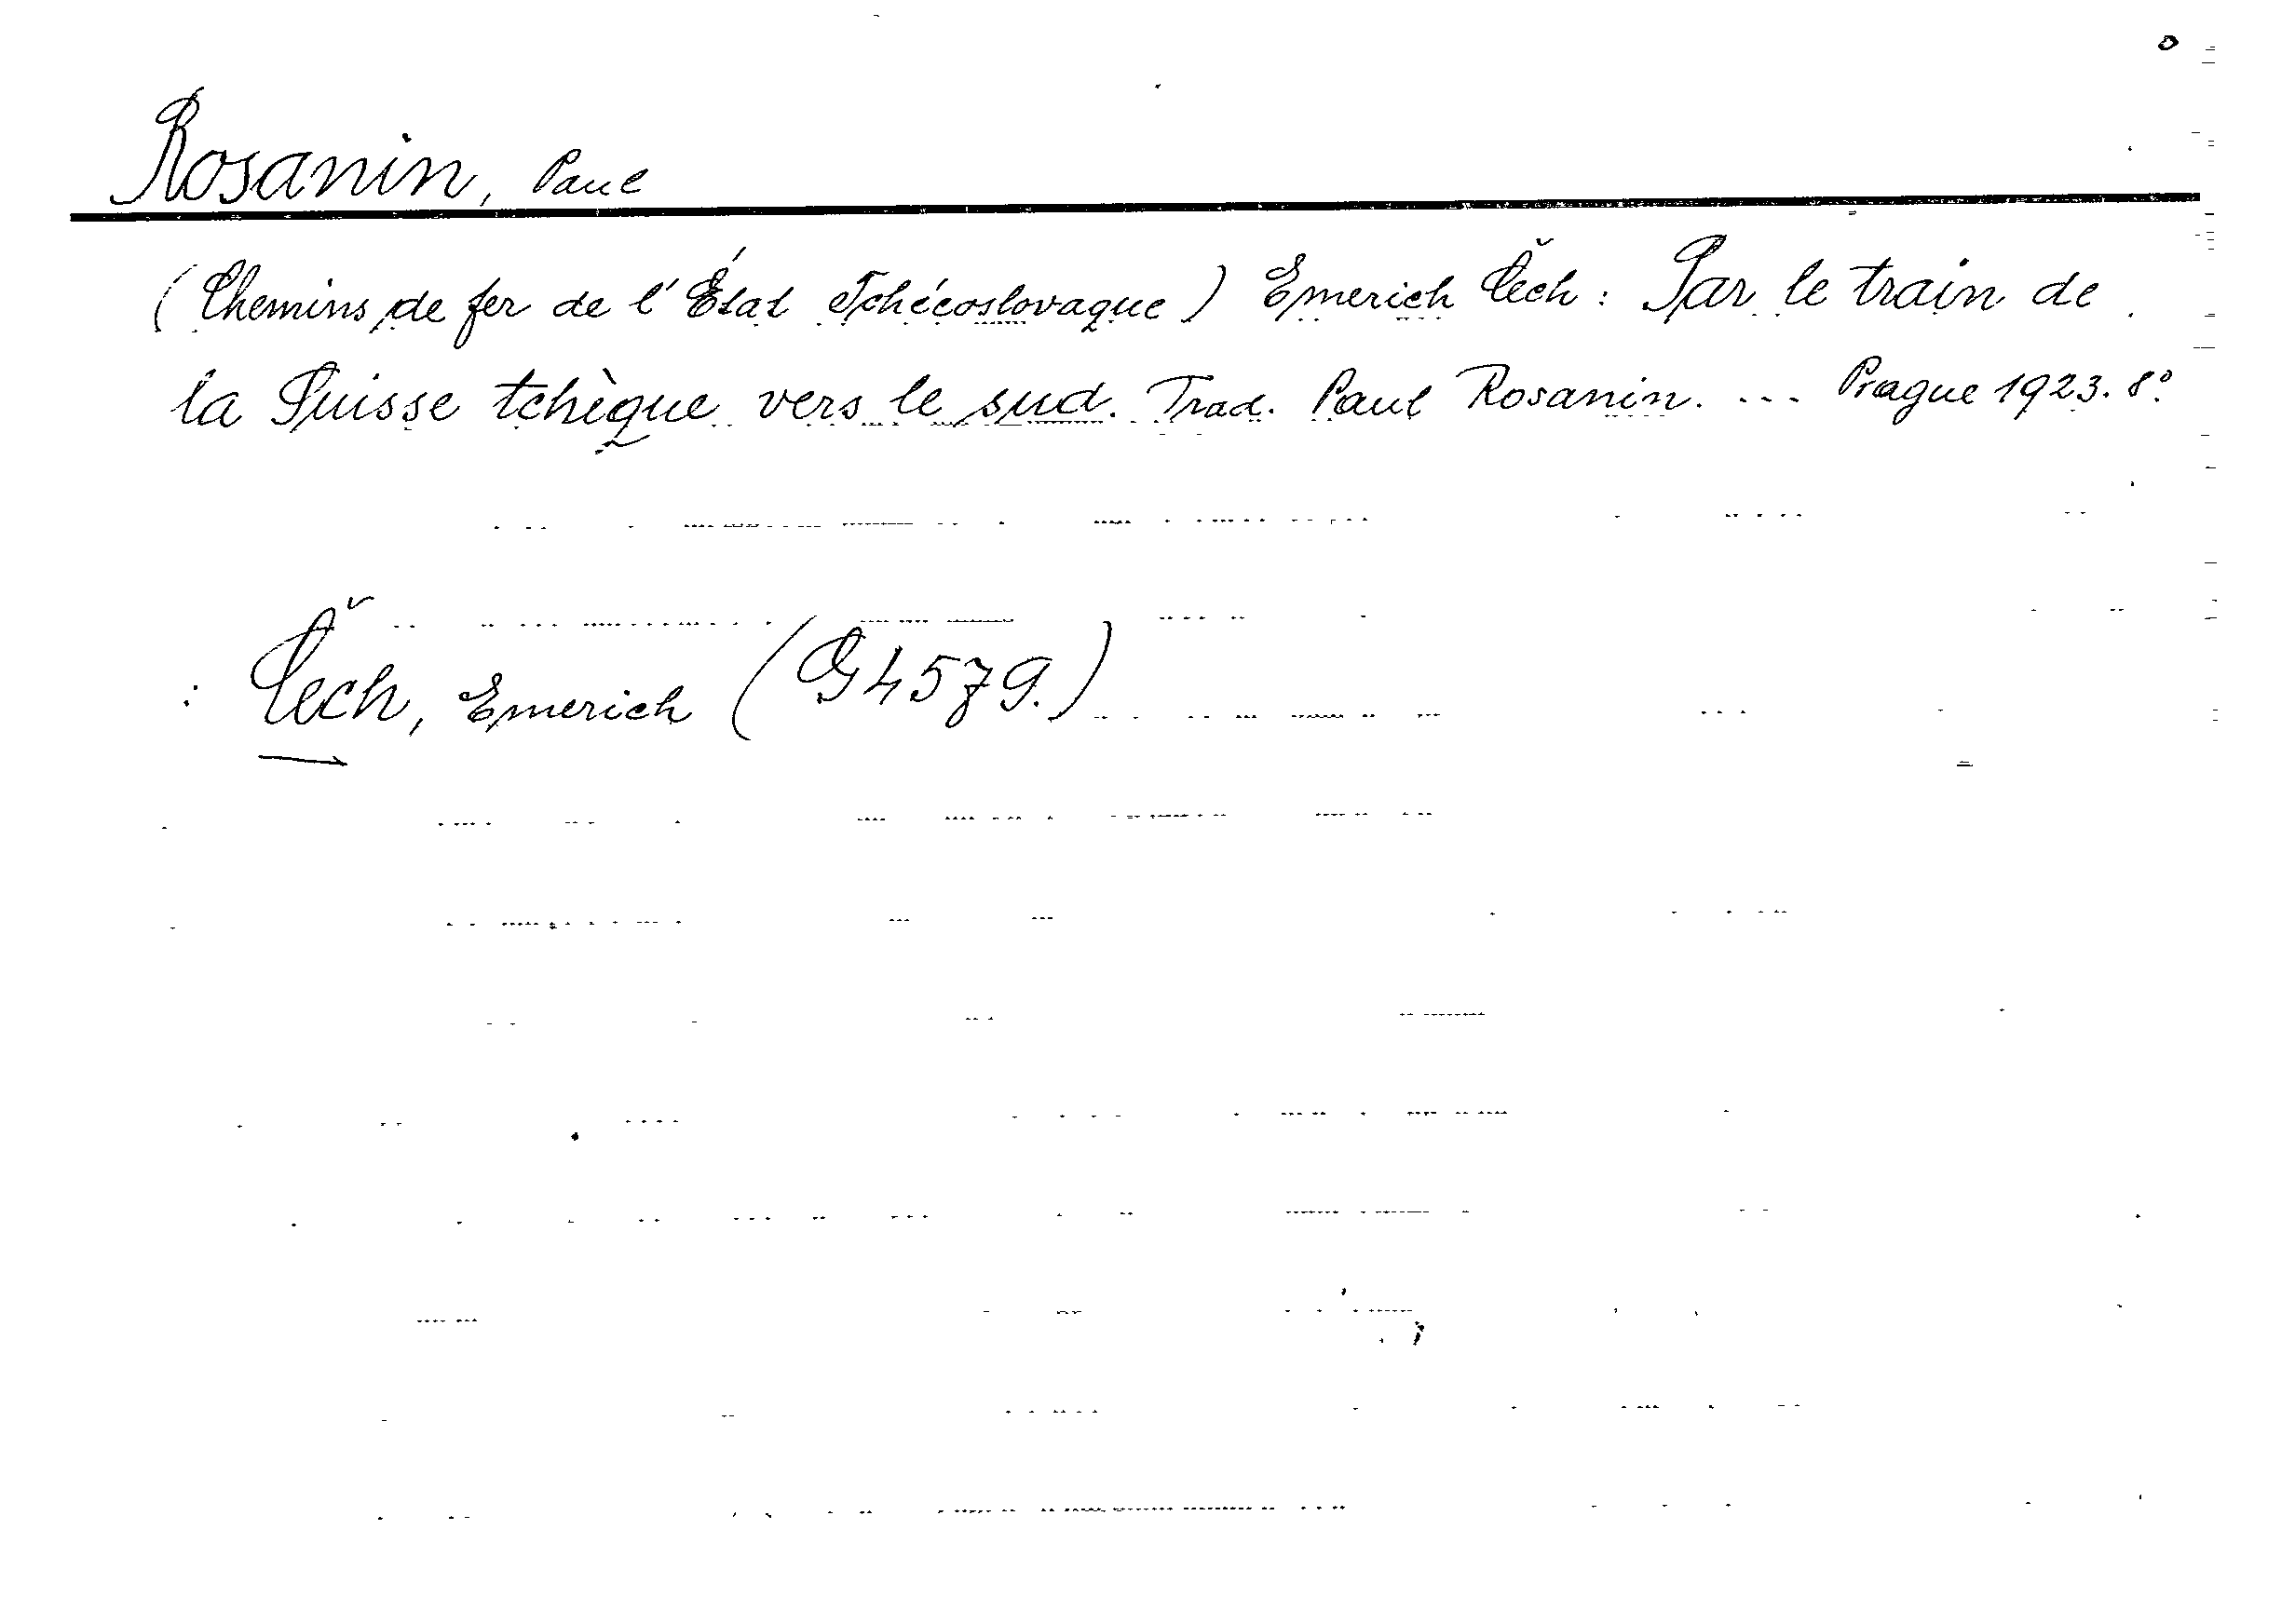 Rosanin, Paul
(Chemins de fer de l'État Tchécoslovaque) Emerich Čech: Par le train de
la Suisse tchèque vers le sud. Trad. Paul Rosanin. ... Prague 1923. 8°.
: Čech, Emerich (G 4579.)